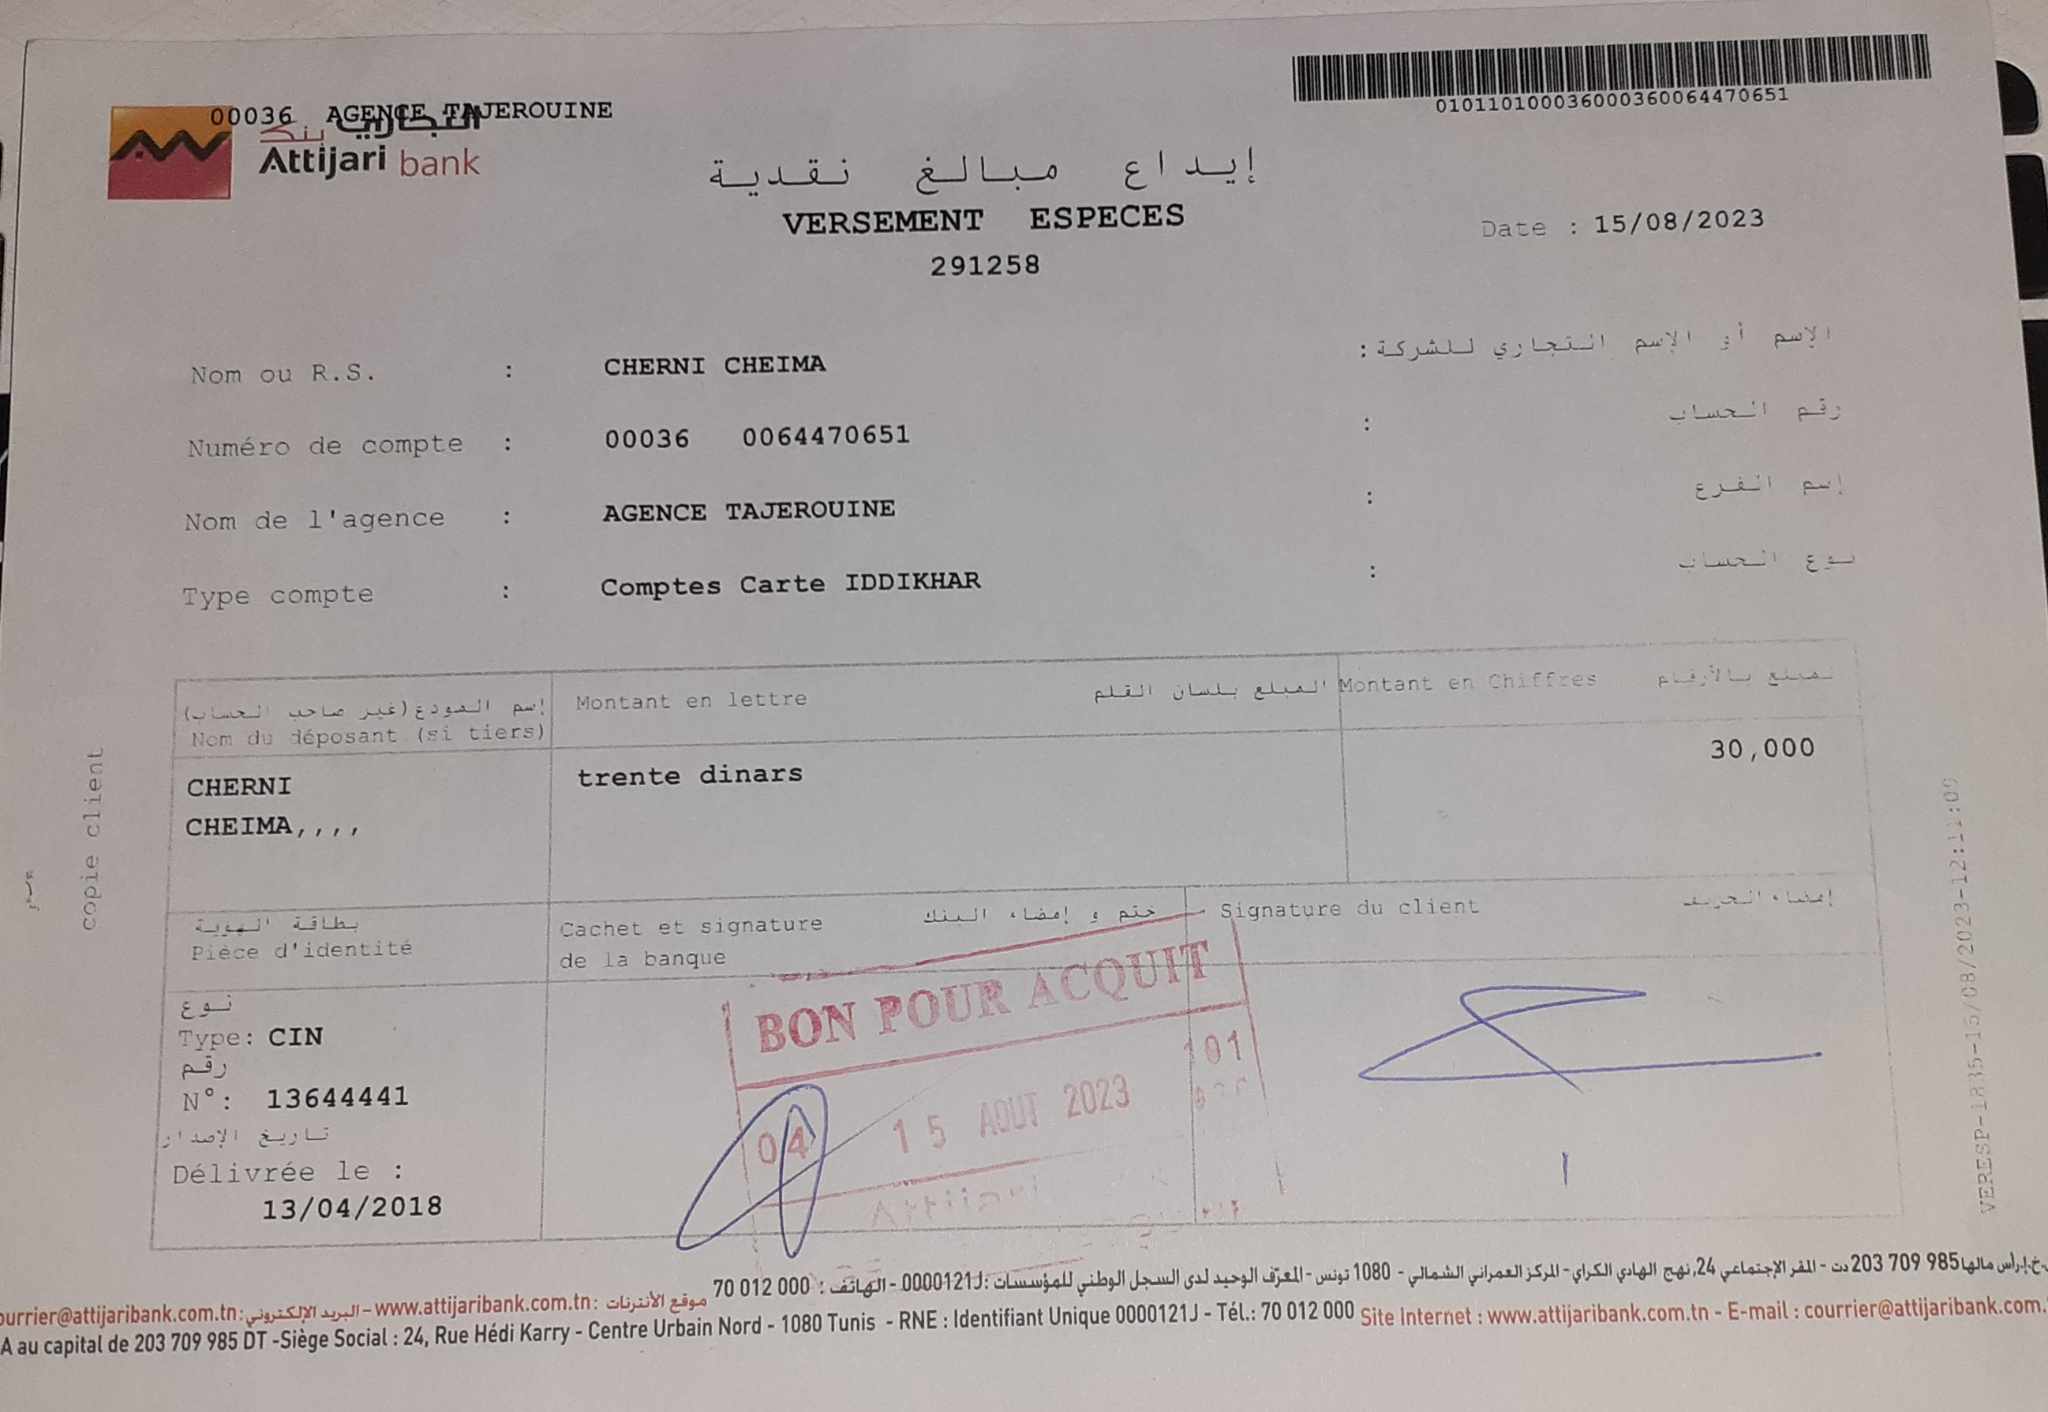 00036 AGENCE TAJEROUINE
التجاري بنك
Attijari bank
010110100036000360064470651
إيداع مبالغ نقدية
VERSEMENT ESPECES
291258
Date : 15/08/2023
Nom ou R.S. : CHERNI CHEIMA الإسم أو الإسم التجاري للشركة :
Numéro de compte : 00036 0064470651 رقم الحساب :
Nom de l'agence : AGENCE TAJEROUINE إسم الفرع :
Type compte : Comptes Carte IDDIKHAR نوع الحساب :
إسم المودع (غير صاحب الحساب)
Nom du déposant (si tiers)
Montant en lettre المبلغ بلسان القلم
Montant en Chiffres المبلغ بالأرقام
CHERNI
CHEIMA,,,,
trente dinars
30,000
بطاقة الهوية
Pièce d'identité
Cachet et signature ختم و إمضاء البنك
de la banque
Signature du client إمضاء الحريف
نوع
Type: CIN
رقم
N°: 13644441
تاريخ الإصدار
Délivrée le :
13/04/2018
BON POUR ACQUIT
04 15 AOUT 2023 101
Attijari
copie client
VERESP-1835-15/08/2023-12:11:09
رأس مالها 203 709 985 دت - المقر الإجتماعي 24, نهج الهادي الكراي - المركز العمراني الشمالي - 1080 تونس - المعرّف الوحيد لدى السجل الوطني للمؤسسات : 0000121J - الهاتف : 70 012 000 موقع الأنترنات : www.attijaribank.com.tn - البريد الإلكتروني : ourrier@attijaribank.com.tn
A au capital de 203 709 985 DT -Siège Social : 24, Rue Hédi Karry - Centre Urbain Nord - 1080 Tunis - RNE : Identifiant Unique 0000121J - Tél.: 70 012 000 Site Internet : www.attijaribank.com.tn - E-mail : courrier@attijaribank.com.